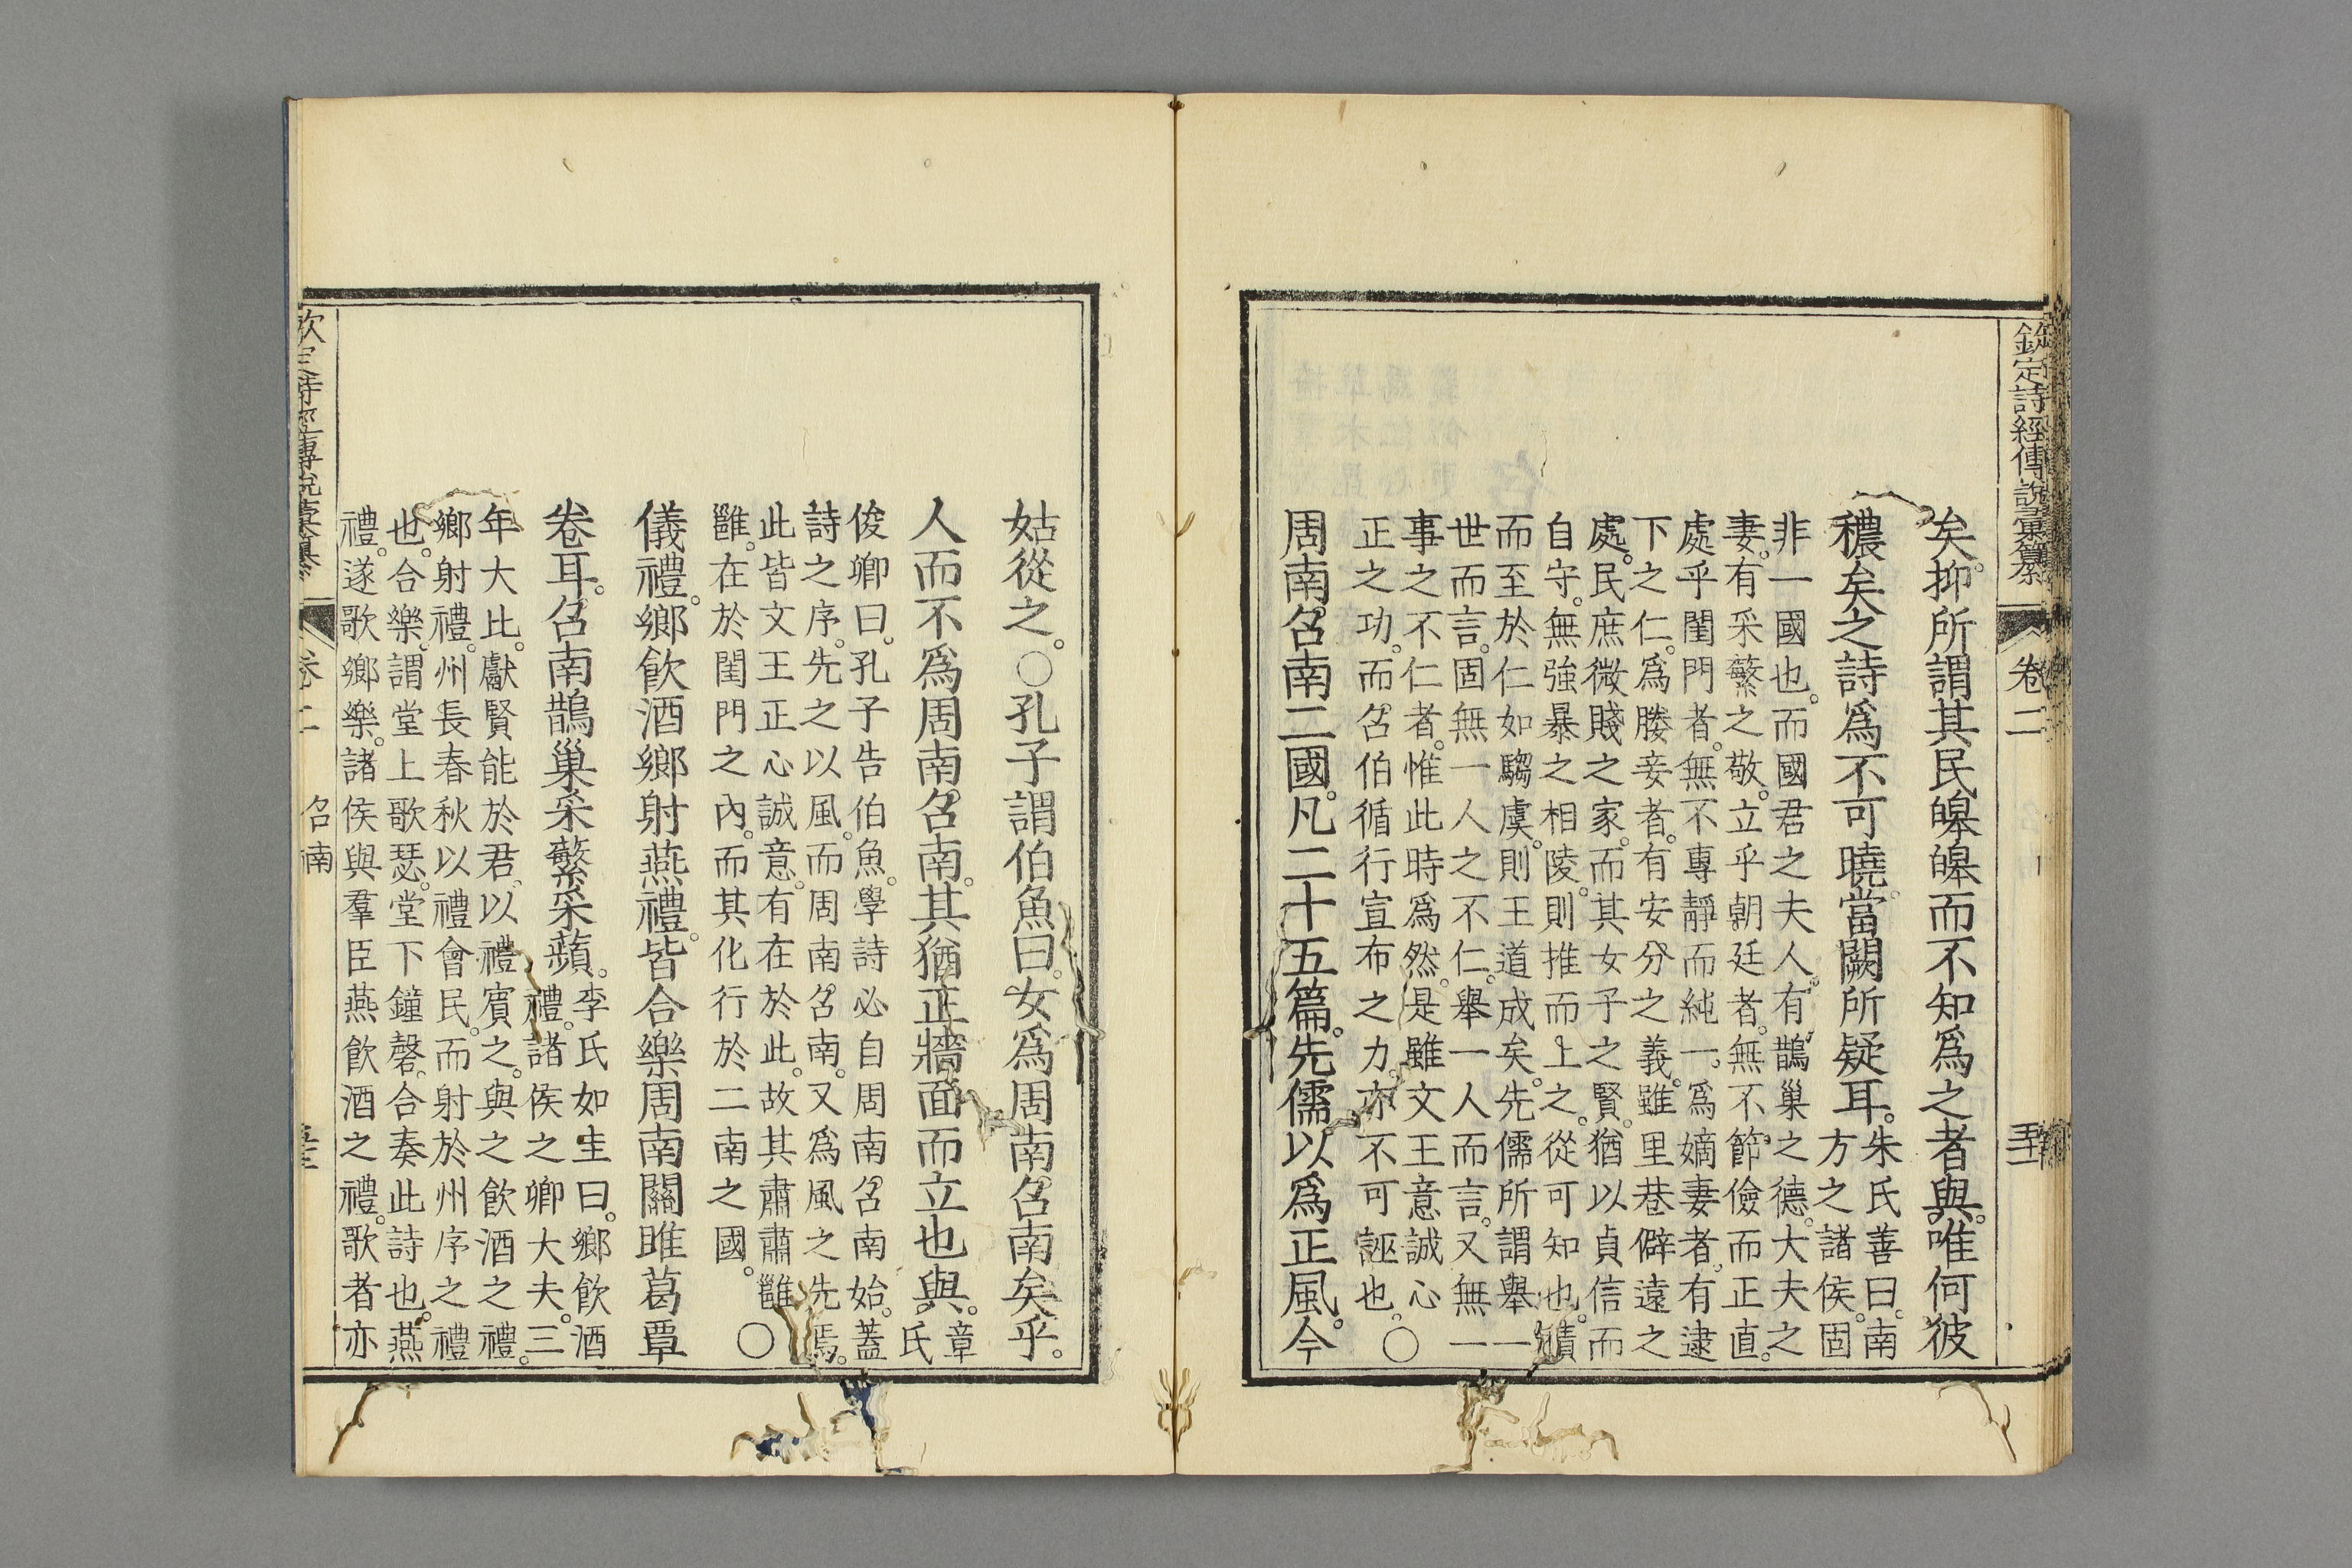 欽定詩經傳說彙纂 卷二
矣。抑所謂其民皞皞而不知爲之者與。唯何彼
穠矣之詩爲不可曉。當闕所疑耳。朱氏善曰。南
方之諸侯。固
非一國也。而國君之夫人。有鵲巢之德。大夫之
妻。有采蘩之敬。立乎朝廷者。無不節儉而正直。
處乎閨門者。無不專靜而純一。爲嫡妻者。有逮
下之仁。爲媵妾者。有安分之義。雖里巷僻遠之
處。民庶微賤之家。而其女子之賢。猶以貞信而
自守。無強暴之相陵。則推而上之。從可知也。積
而至於仁如騶虞。則王道成矣。先儒所謂舉一
世而言。固無一人之不仁。舉一人而言。又無一
事之不仁者。惟此時爲然。是雖文王意誠心
正之功。而召伯循行宣布之力。亦不可誣也。○
周南召南二國。凡二十五篇。先儒以爲正風。今
姑從之。○孔子謂伯魚曰。女爲周南召南矣乎。
人而不爲周南召南。其猶正牆面而立也與。章
氏
俊卿曰。孔子告伯魚。學詩必自周南召南始。蓋
詩之序。先之以風。而周南召南。又爲風之先焉。
此皆文王正心誠意。有在於此。故其肅肅雝
雝。在於閨門之內。而其化行於二南之國。○
儀禮。鄉飲酒鄉射燕禮。皆合樂周南關雎葛覃
卷耳。召南鵲巢采蘩采蘋。李氏如圭曰。鄉飲酒
禮。諸侯之卿大夫。三
年大比。獻賢能於君。以禮賓之。與之飲酒之禮。
鄉射禮。州長春秋以禮會民。而射於州序之禮
也。合樂。謂堂上歌瑟。堂下鐘磬。合奏此詩也。燕
禮。遂歌鄉樂。諸侯與羣臣燕飲酒之禮。歌者亦
欽定詩經傳說彙纂 卷二 召南